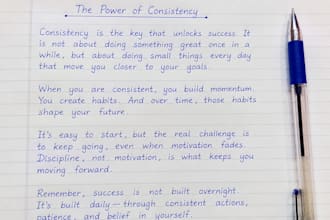 The Power of Consistency
Consistency is the key that unlocks success. It
is not about doing something great once in a
while, but about doing small things every day
that move you closer to your goals.
When you are consistent, you build momentum.
You create habits. And over time, those habits
shape your future.
It's easy to start, but the real challenge is
to keep going, even when motivation fades.
Discipline, not motivation, is what keeps you
moving forward.
Remember, success is not built overnight.
It's built daily — through consistent actions,
patience, and belief in yourself.